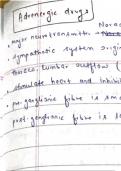 Adrenergic drugs
Norad
• major neurotransmitter →
• sympathetic system origin
thoraco lumbar outflow (
• stimulate heart and inhibit
• pre ganglionic fibre is sma
• post-ganglionic fibre is l